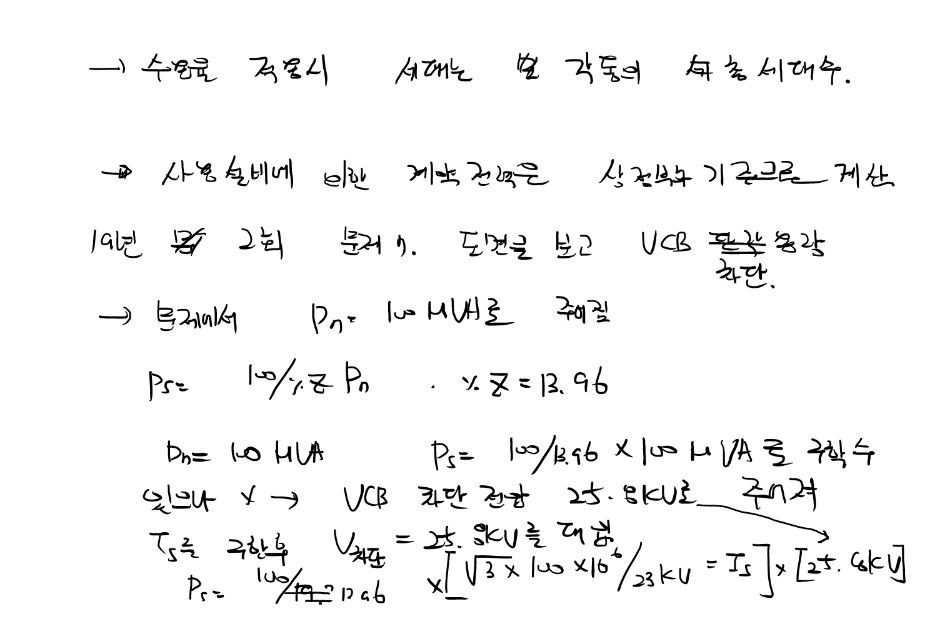 → 수용률 적용시 세대는 각동의 총 세대수.
→ 사용설비에 의한 계약전력은 상전부두 기준으로 계산
19년 2회 문제 7. 도면을 보고 VCB 용량
차단.
→ 문제에서 Pn = 100 MVA로 주어짐
Ps = 100/%Z Pn . %Z = 13.96
Pn = 100 MVA Ps = 100/13.96 × 100 MVA로 구할 수
있으나 × → VCB 차단 전압 25.8KV로 주어져
Is를 구한 후 V차단 = 25.8KV를 대입
Ps = 100/13.96 × [√3 × 100 × 10⁶/23KV = Is] × [25.8KV]